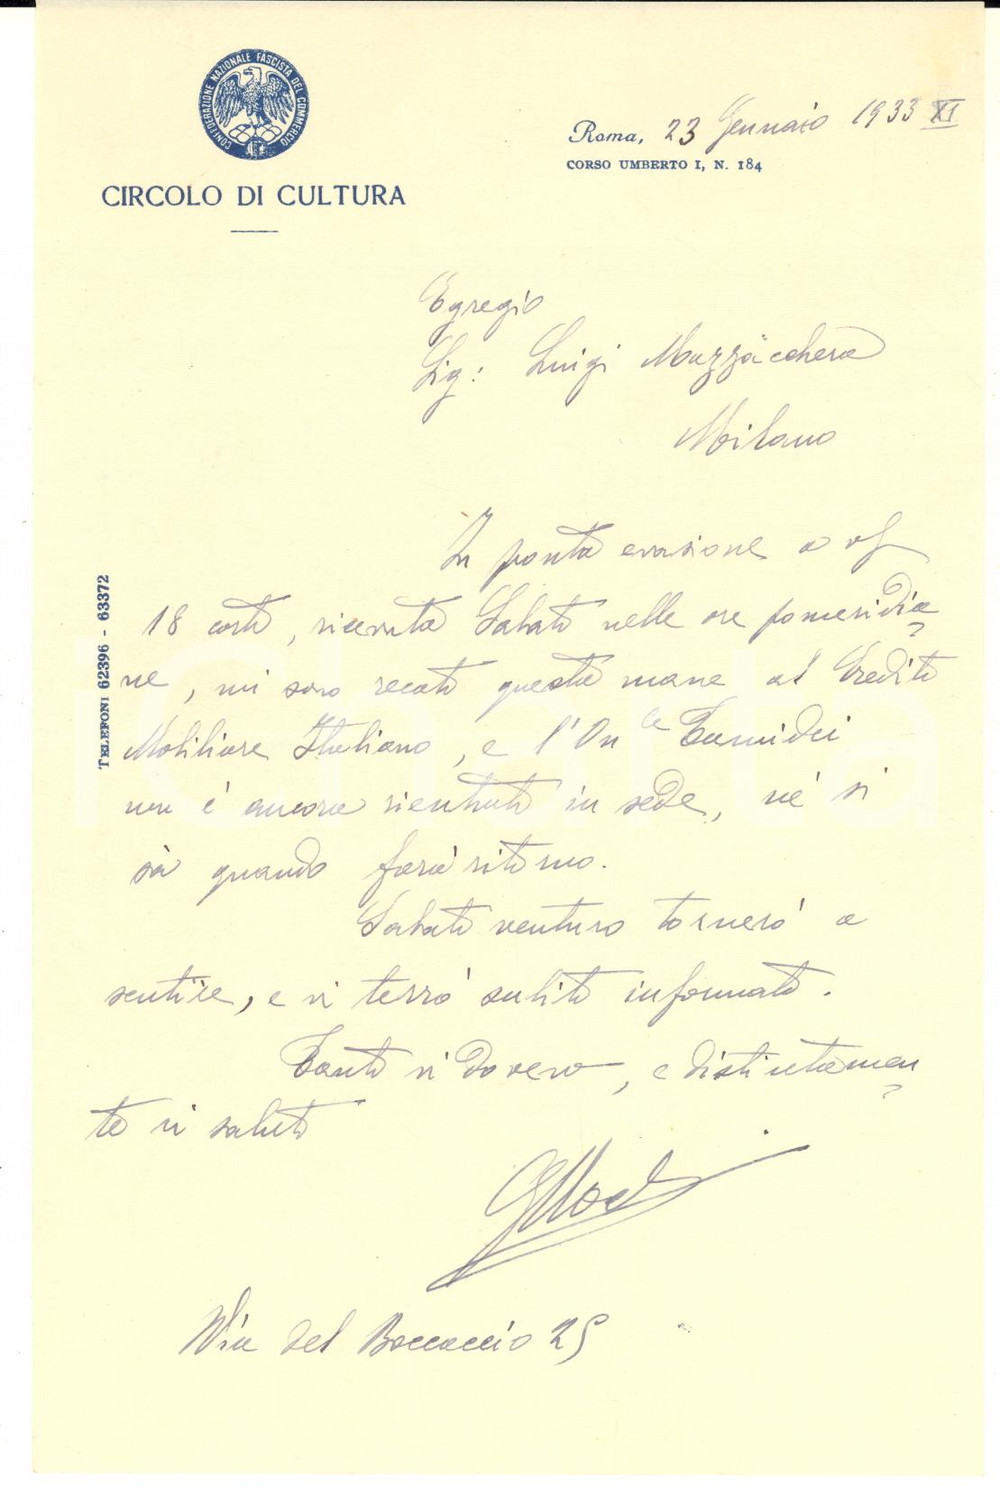 CONFEDERAZIONE NAZIONALE FASCISTA DEL COMMERCIO
CIRCOLO DI CULTURA
Roma, 23 Gennaio 1933 XI
CORSO UMBERTO I, N. 184
TELEFONI 62396 - 63372
Egregio
Sig: Luigi Mazzucchera
Milano
In pronta evasione a
18 corrte, ricevuta Sabato nelle ore pomeridia
ne, mi sono recato questa mane al Credito
Mobiliare Italiano, e l'On le Tumidei
non è ancora rientrato in sede, nè si
sà quando farà ritorno.
Sabato venturo tornerò a
sentire, e vi terrò subito informato.
Tanto vi dovevo, e distintamen
te vi saluto
Via del Boccaccio 25